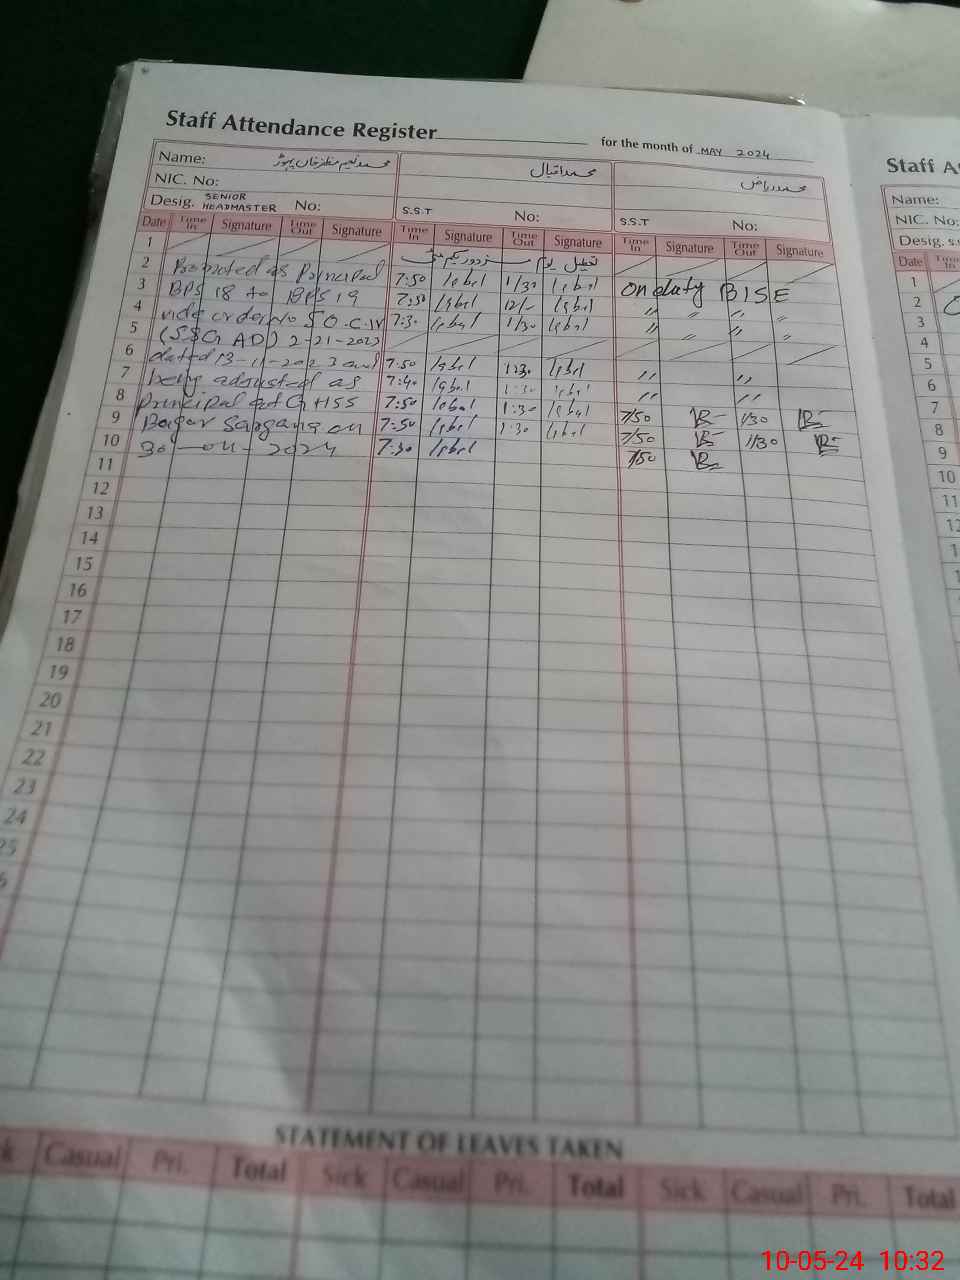 Staff Attendance Register
for the month of MAY 2024
Staff A
Name: محمد نعیم مظفر خان
محمد اقبال
محمد ریاض
Name:
NIC. No:
NIC. No:
Desig. SENIOR HEADMASTER No:
S.S.T No:
S.S.T No:
Desig. S.S
Date Time In Signature Time Out Signature Time In Signature Time Out Signature Time In Signature Time Out Signature
Date Time In
1 تعطیل یوم مزدور یکم مئی
1
2 Promoted as Principal 7:50 Iqbal 1/30 Iqbal on duty BISE
2
3 BPS 18 to BPS 19 7:50 Iqbal 12/- Iqbal " " "
3
4 vide order No SO.C.IV 7:30 Iqbal 1/30 Iqbal " " "
4
5 (S&GAD) 2-21-2023
5
6 dated 13-11-2023 and 7:50 Iqbal 1:30 Iqbal " "
6
7 being adjusted as 7:40 Iqbal 1:30 Iqbal " "
7
8 Principal at GHSS 7:50 Iqbal 1:30 Iqbal 7/50 1/30
8
9 Bagar Sargana on 7:50 Iqbal 1:30 Iqbal 7/50 1/30
9
10 30-04-2024 7:30 Iqbal 7/50
10
11
11
12
12
13
14
15
16
17
18
19
20
21
22
23
24
25
STATEMENT OF LEAVES TAKEN
k Casual Pri. Total Sick Casual Pri. Total Sick Casual Pri. Total
10-05-24 10:32